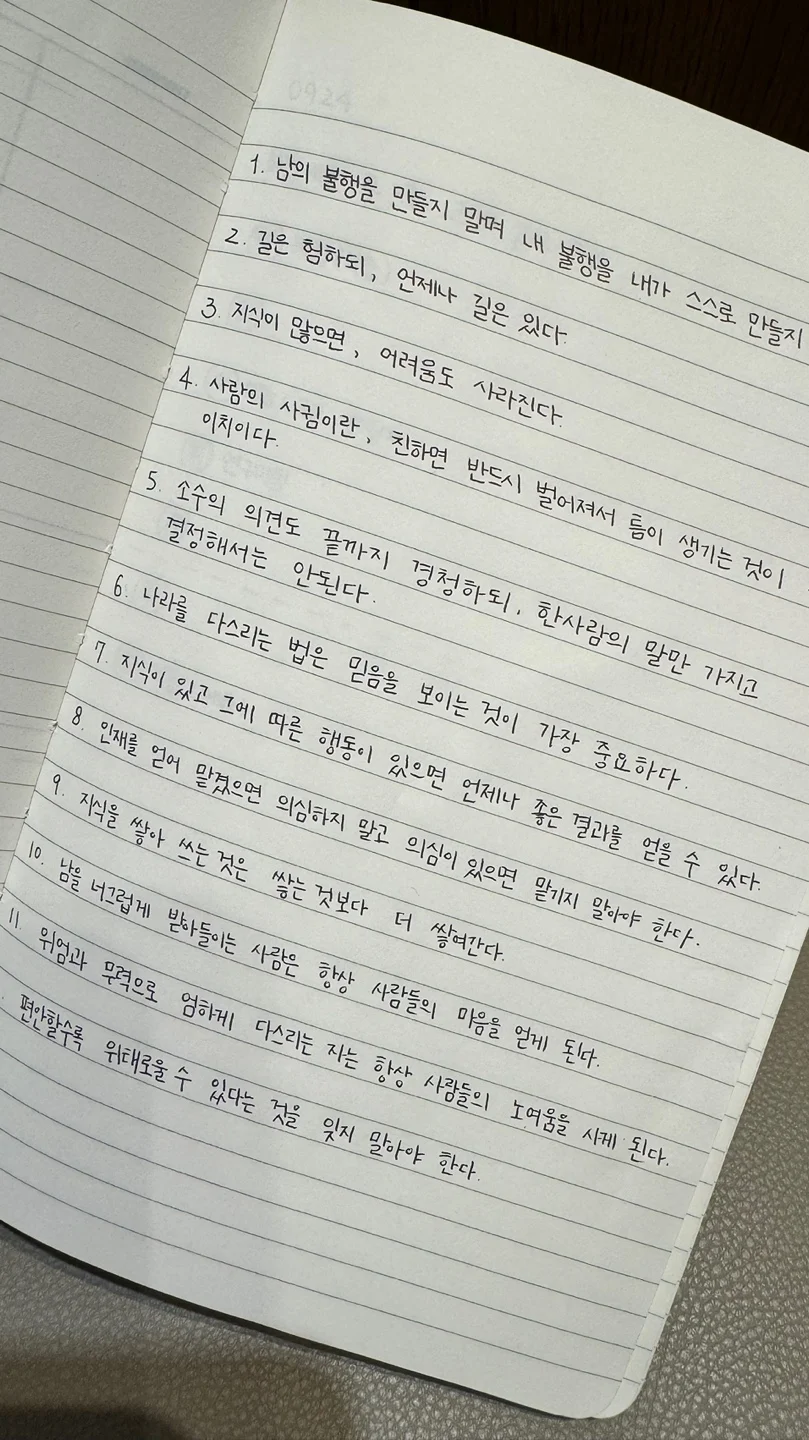 0924
1. 남의 불행을 만들지 말며 내 불행을 내가 스스로 만들지
2. 길은 험하되, 언제나 길은 있다.
3. 지식이 많으면, 어려움도 사라진다.
4. 사람의 사귐이란, 친하면 반드시 벌어져서 틈이 생기는 것이
이치이다.
5. 소수의 의견도 끝까지 경청하되, 한사람의 말만 가지고
결정해서는 안된다.
6. 나라를 다스리는 법은 믿음을 보이는 것이 가장 중요하다.
7. 지식이 있고 그에 따른 행동이 있으면 언제나 좋은 결과를 얻을 수 있다.
8. 인재를 얻어 맡겼으면 의심하지 말고 의심이 있으면 맡기지 말아야 한다.
9. 지식을 쌓아 쓰는 것은 쌓는 것보다 더 쌓여간다.
10. 남을 너그럽게 받아들이는 사람은 항상 사람들의 마음을 얻게 된다.
11. 위엄과 무력으로 엄하게 다스리는 자는 항상 사람들의 노여움을 사게 된다.
편안할수록 위태로울 수 있다는 것을 잊지 말아야 한다.